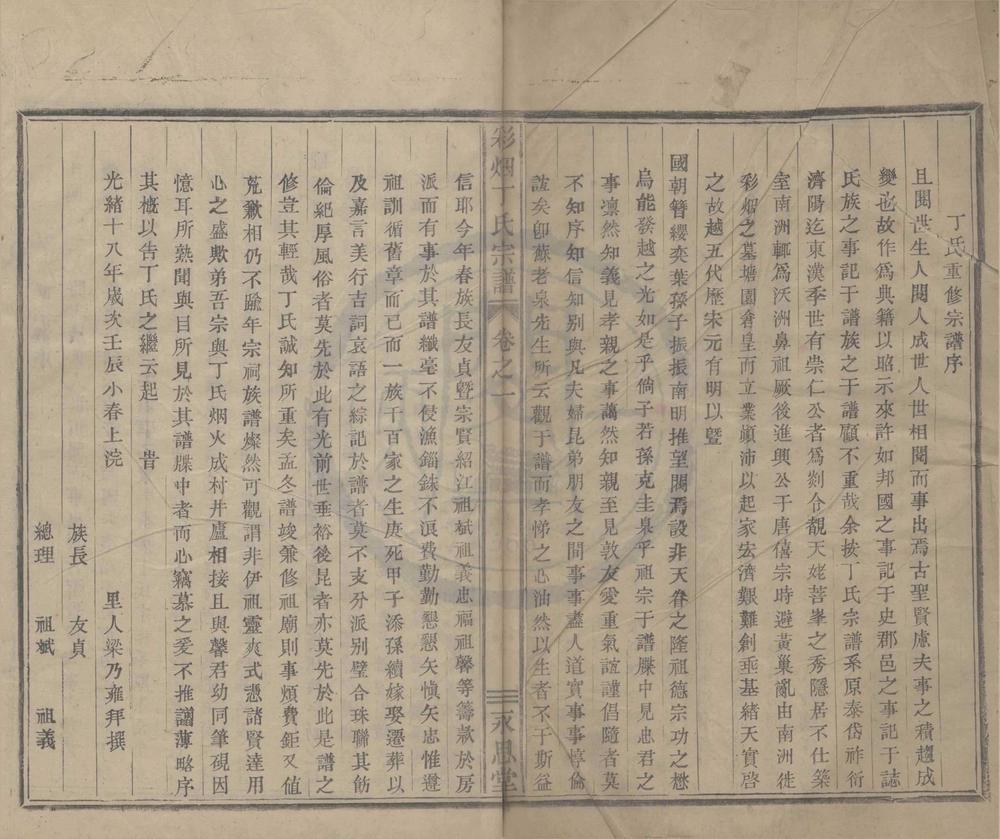 丁氏重修宗譜序
且閱世生人閱人成世人世相閱而事出焉古聖賢慮夫事之積趨成
變也故作為典籍以昭示來許如邦國之事記于史郡邑之事記于誌
氏族之事記于譜族之于譜顧不重哉余按丁氏宗譜系原泰岱祚衍
濟陽迄東漢季世有崇仁公者為剡令覩天姥菩峯之秀隱居不仕築
室南洲鄊為沃洲鼻祖厥後進興公于唐僖宗時避黃巢亂由南洲徙
彩烟之墓塘園倉皇而立業顛沛以起家宏濟艱難創垂基緒天實啓
之故越五代歷宋元有明以曁
國朝簪纓奕葉孫子振振南明推望閥焉設非天眷之隆祖德宗功之懋
烏能發越之光如是乎倘子若孫克圭臬乎祖宗于譜牒中見忠君之
事凜然知義見孝親之事藹然知親至見敦友愛重氣誼謹倡隨者莫
不知序知信知別與凡夫婦昆弟朋友之間事事盡人道實事事惇倫
誼矣卽蘇老泉先生所云觀于譜而孝悌之心油然以生者不于斯益
彩烟丁氏宗譜 卷之一 永思堂
信耶今年春族長友貞曁宗賢紹江祖斌祖義忠福祖馨等籌款於房
派而有事於其譜纖毫不侵漁錙銖不浪費勤勤懇懇矢愼矢忠惟遵
祖訓循舊章而已而一族千百家之生庚死甲子添孫續嫁娶遷葬以
及嘉言美行吉詞哀語之綜記於譜者莫不支分派別璧合珠聯其飭
倫紀厚風俗者莫先於此有光前世垂裕後昆者亦莫先於此是譜之
修豈其輕哉丁氏誠知所重矣孟冬譜竣兼修祖廟則事煩費鉅又值
荒歉相仍不踰年宗祠族譜燦然可觀謂非伊祖靈爽式憑諸賢達用
心之盛歟弟吾宗與丁氏烟火成村井廬相接且與馨君幼同筆硯因
憶耳所熟聞與目所見於其譜牒中者而心竊慕之爰不推譾薄略序
其概以告丁氏之繼云起 旹
光緒十八年歲次壬辰小春上浣
里人梁乃雍拜撰
族長 友貞
總理 祖斌 祖義